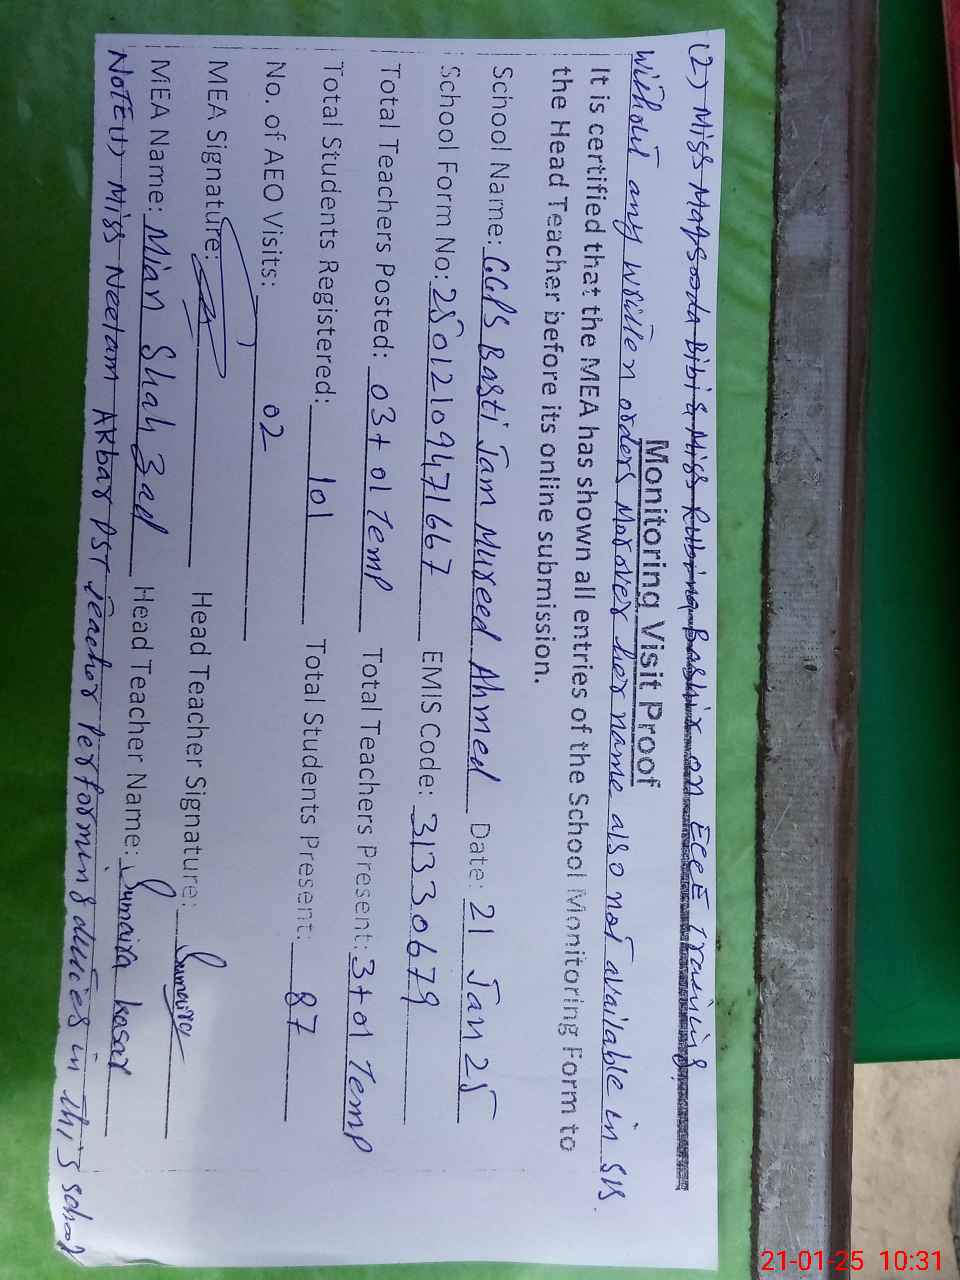 (2) Miss Maqsooda Bibi & Miss Rubina Bashir on ECCE Training
Monitoring Visit Proof
without any written orders Morover her name also not available in SIS.
It is certified that the MEA has shown all entries of the School Monitoring Form to
the Head Teacher before its online submission.
School Name: GGPS Basti Jam Mureed Ahmed Date: 21 Jan 25
School Form No: 25012109471667 EMIS Code: 31330679
Total Teachers Posted: 03+01 Temp Total Teachers Present: 3+01 Temp
Total Students Registered: 101 Total Students Present: 87
No. of AEO Visits: 02
MEA Signature: Head Teacher Signature: Sumaira
MEA Name: Mian Shah Zad Head Teacher Name: Sumaira kosar
NOTE(1) Miss Neelam Akbar PST Teacher Performing duties in this school
21-01-25 10:31